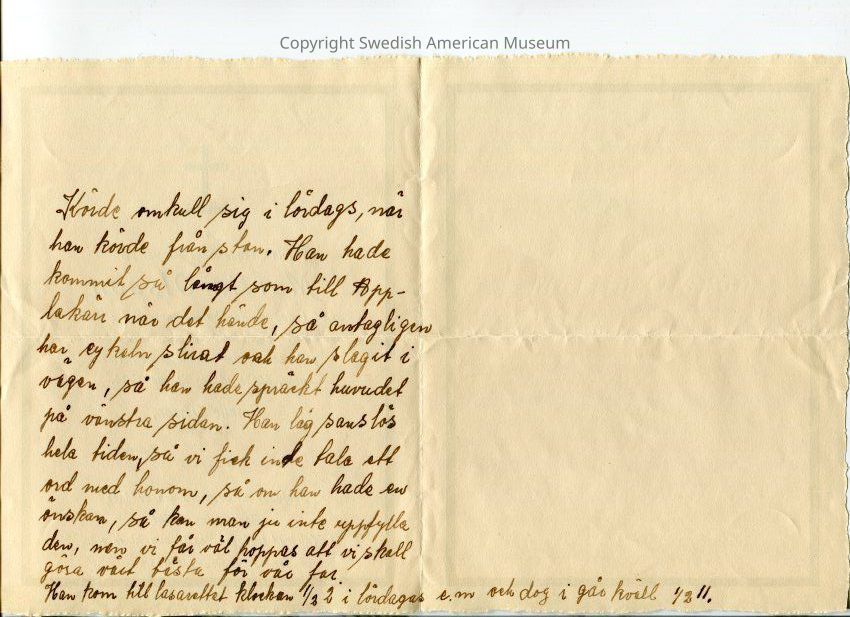 Copyright Swedish American Museum
Körde omkull sig i lördags, när
han körde från stan. Han hade
kommit så långt som till App-
lakärr när det hände, så antagligen
har cykeln slirat och han slagit i
vägen, så han hade spräckt huvudet
på vänstra sidan. Han låg sanslös
hela tiden, så vi fick inde tala ett
ord med honom, så om han hade en
önskan, så kan man ju inte uppfylla
den, men vi får väl hoppas att vi skall
göra vårt bästa för vår far.
Han kom till lasarettet klockan 1/2 2 i lördagas e.m och dog i går kväll 1/2 11.